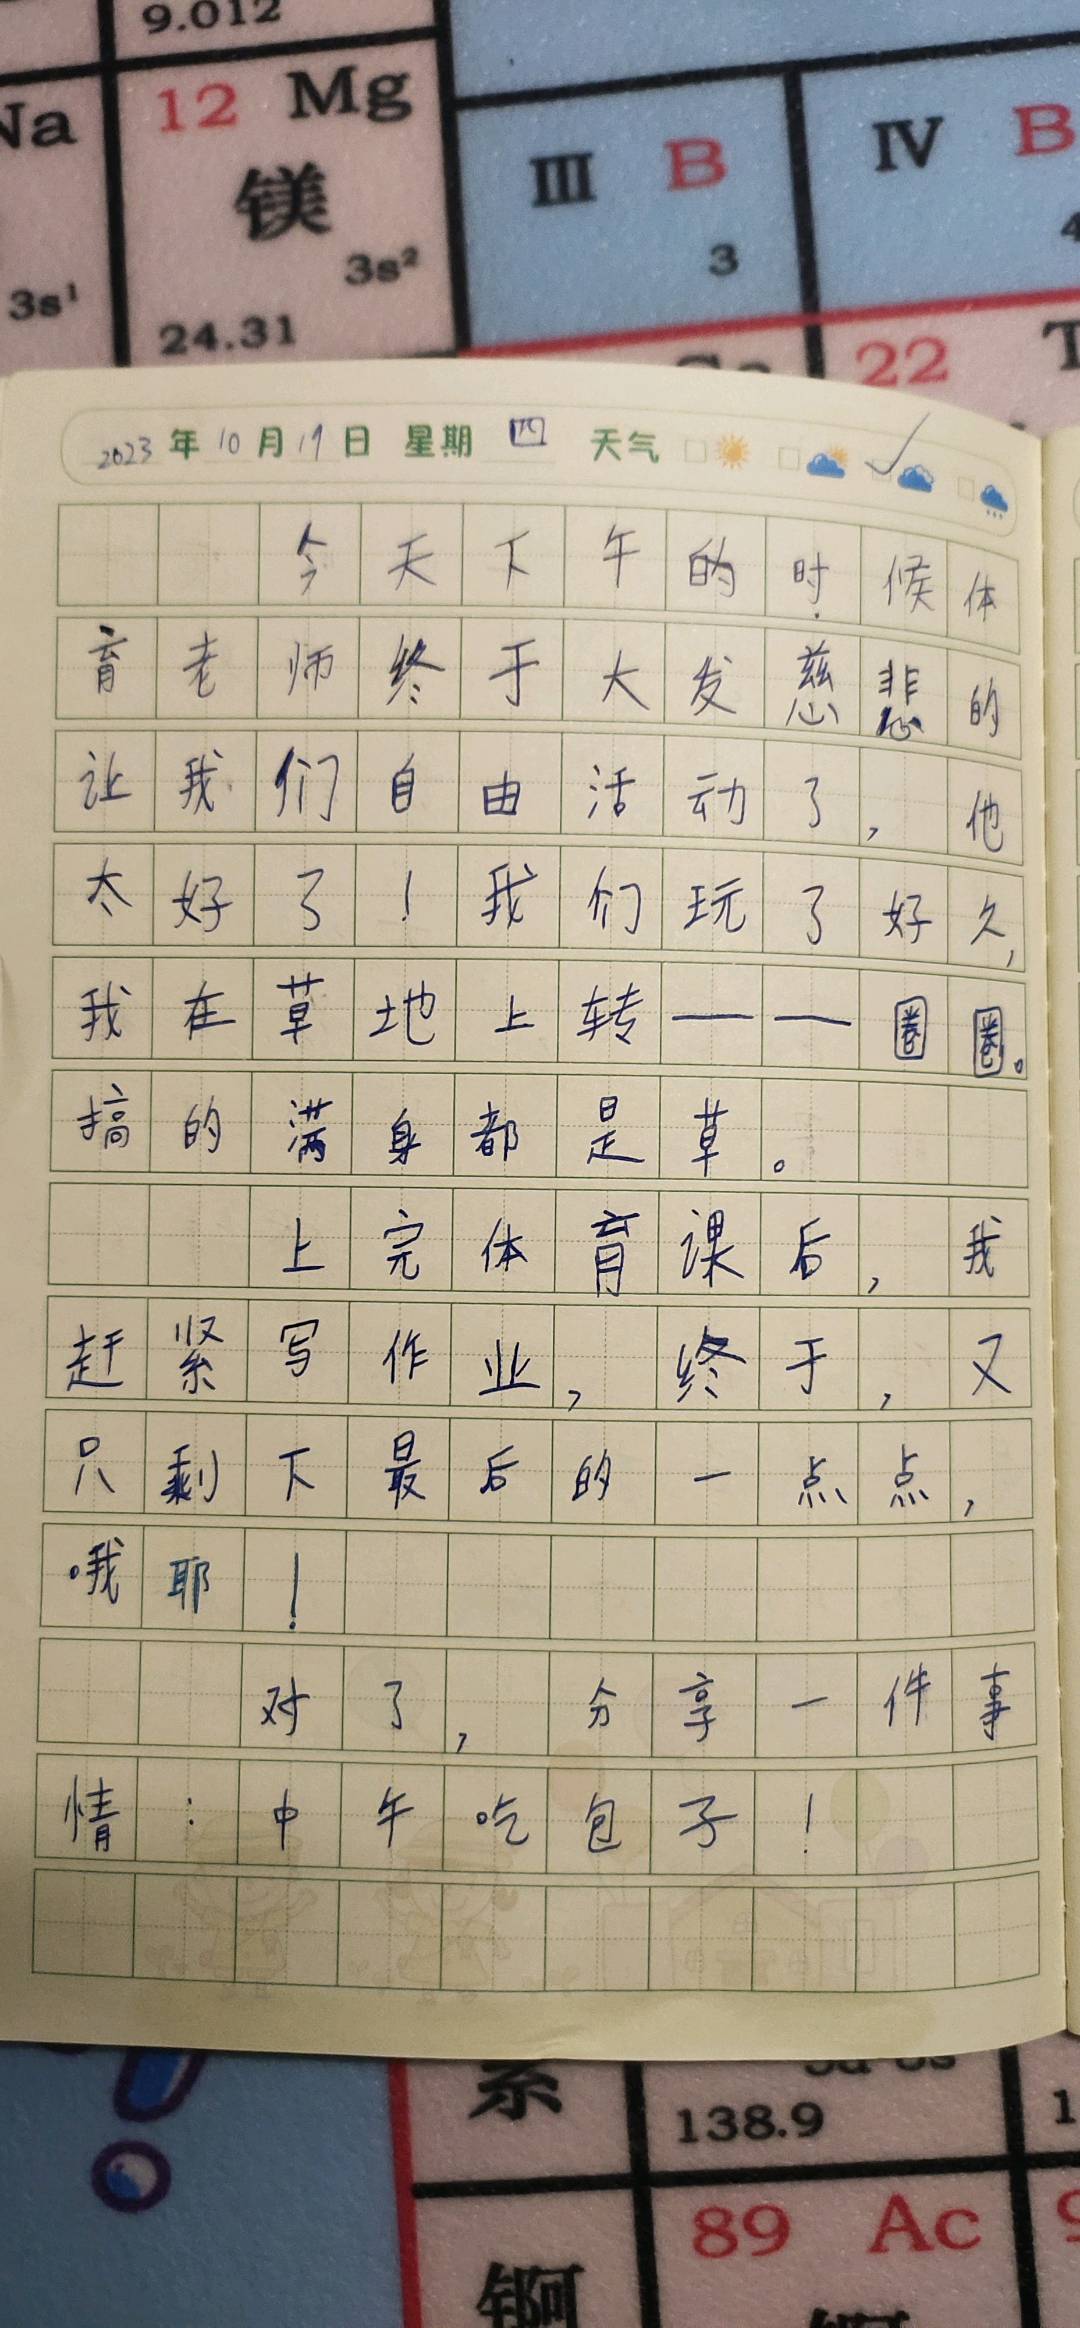 9.012
Na 12 Mg
镁
3s¹ 3s²
24.31
III B IV B
3 4
22 T
2023年10月19日 星期四 天气
今天下午的时候体
育老师终于大发慈悲的
让我们自由活动了，他
太好了！我们玩了好久，
我在草地上转——圈圈。
搞的满身都是草。
上完体育课后，我
赶紧写作业，终于，又
只剩下最后的一点点，
哦耶！
对了，分享一件事
情：中午吃包子！
138.9
89 Ac
锕